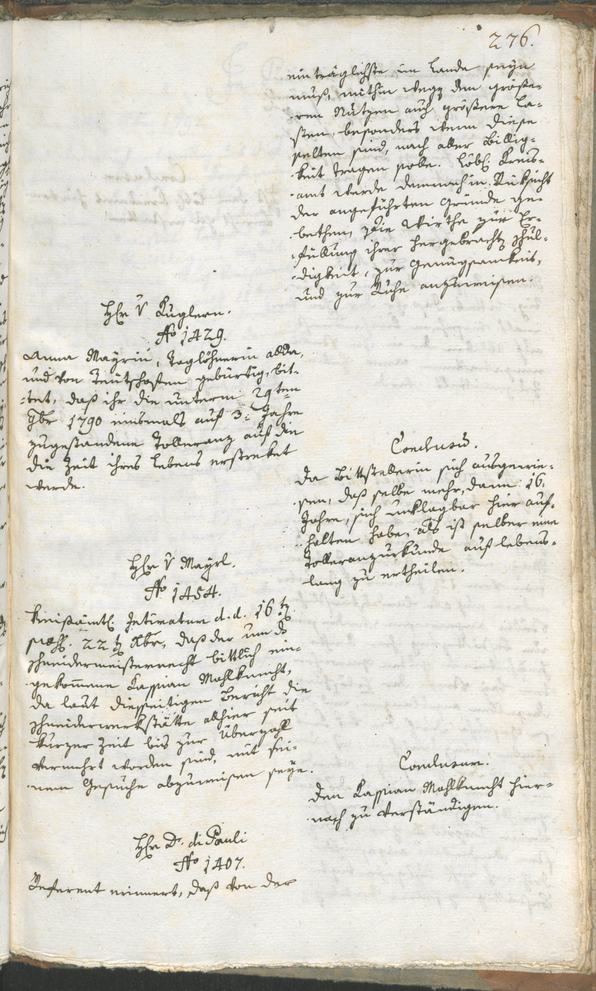 276.
einträglichste im Lande seyn
muß, mithin wegen dem größe-
ren Nutzen auch größere La-
sten, besonders wenn diese
selten sind, nach aller Billig-
keit tragen solle. Löbl. Kreis-
amt werde demnach in Rücksicht
der angeführten Gründe ge-
bethen, die Wirthe zur Er-
füllung ihrer hergebrachten Schul-
digkeit, zur Genügsamkeit,
und zur Ruhe anzuweisen.
Hr v Kuglern.
No 1429.
Anna Mayrin, Taglöhnerin allda,
und von Teutschofen gebürtig, bit-
tet, daß ihr die unterm 29ten
9br 1790 einsmals auf 3 Jahre
zugestandene Tolleranz auf die
die Zeit ihres Lebens erstreket
werde.
Conclusum.
Da Bittstellerin sich ausgewie-
sen, daß selbe mehr, dann 16
Jahre, sich unklagbar hier auf-
halten habe, als ist selber eine
Tolleranzurkunde auf lebens-
lang zu ertheilen.
Hr v Mayrl.
No 1454.
Kreisämtl. Intimatum d.d. 16
praes. 22 Xbr, daß der um das
Schneidermeisterrecht bittlich ein-
gekommene Kassian Mahlknecht,
da laut diesseitigen Bericht die
Schneiderwerkstätte alhier seit
kurzer Zeit bis zur Überzahl
vermehrt worden sind, mit sei-
nem Gesuche abzuweisen seye.
Conclusum.
Den Kassian Mahlknecht hier-
nach zu verständigen.
Hr Dr. di Pauli
No 1407.
Referent erinnert, daß von der